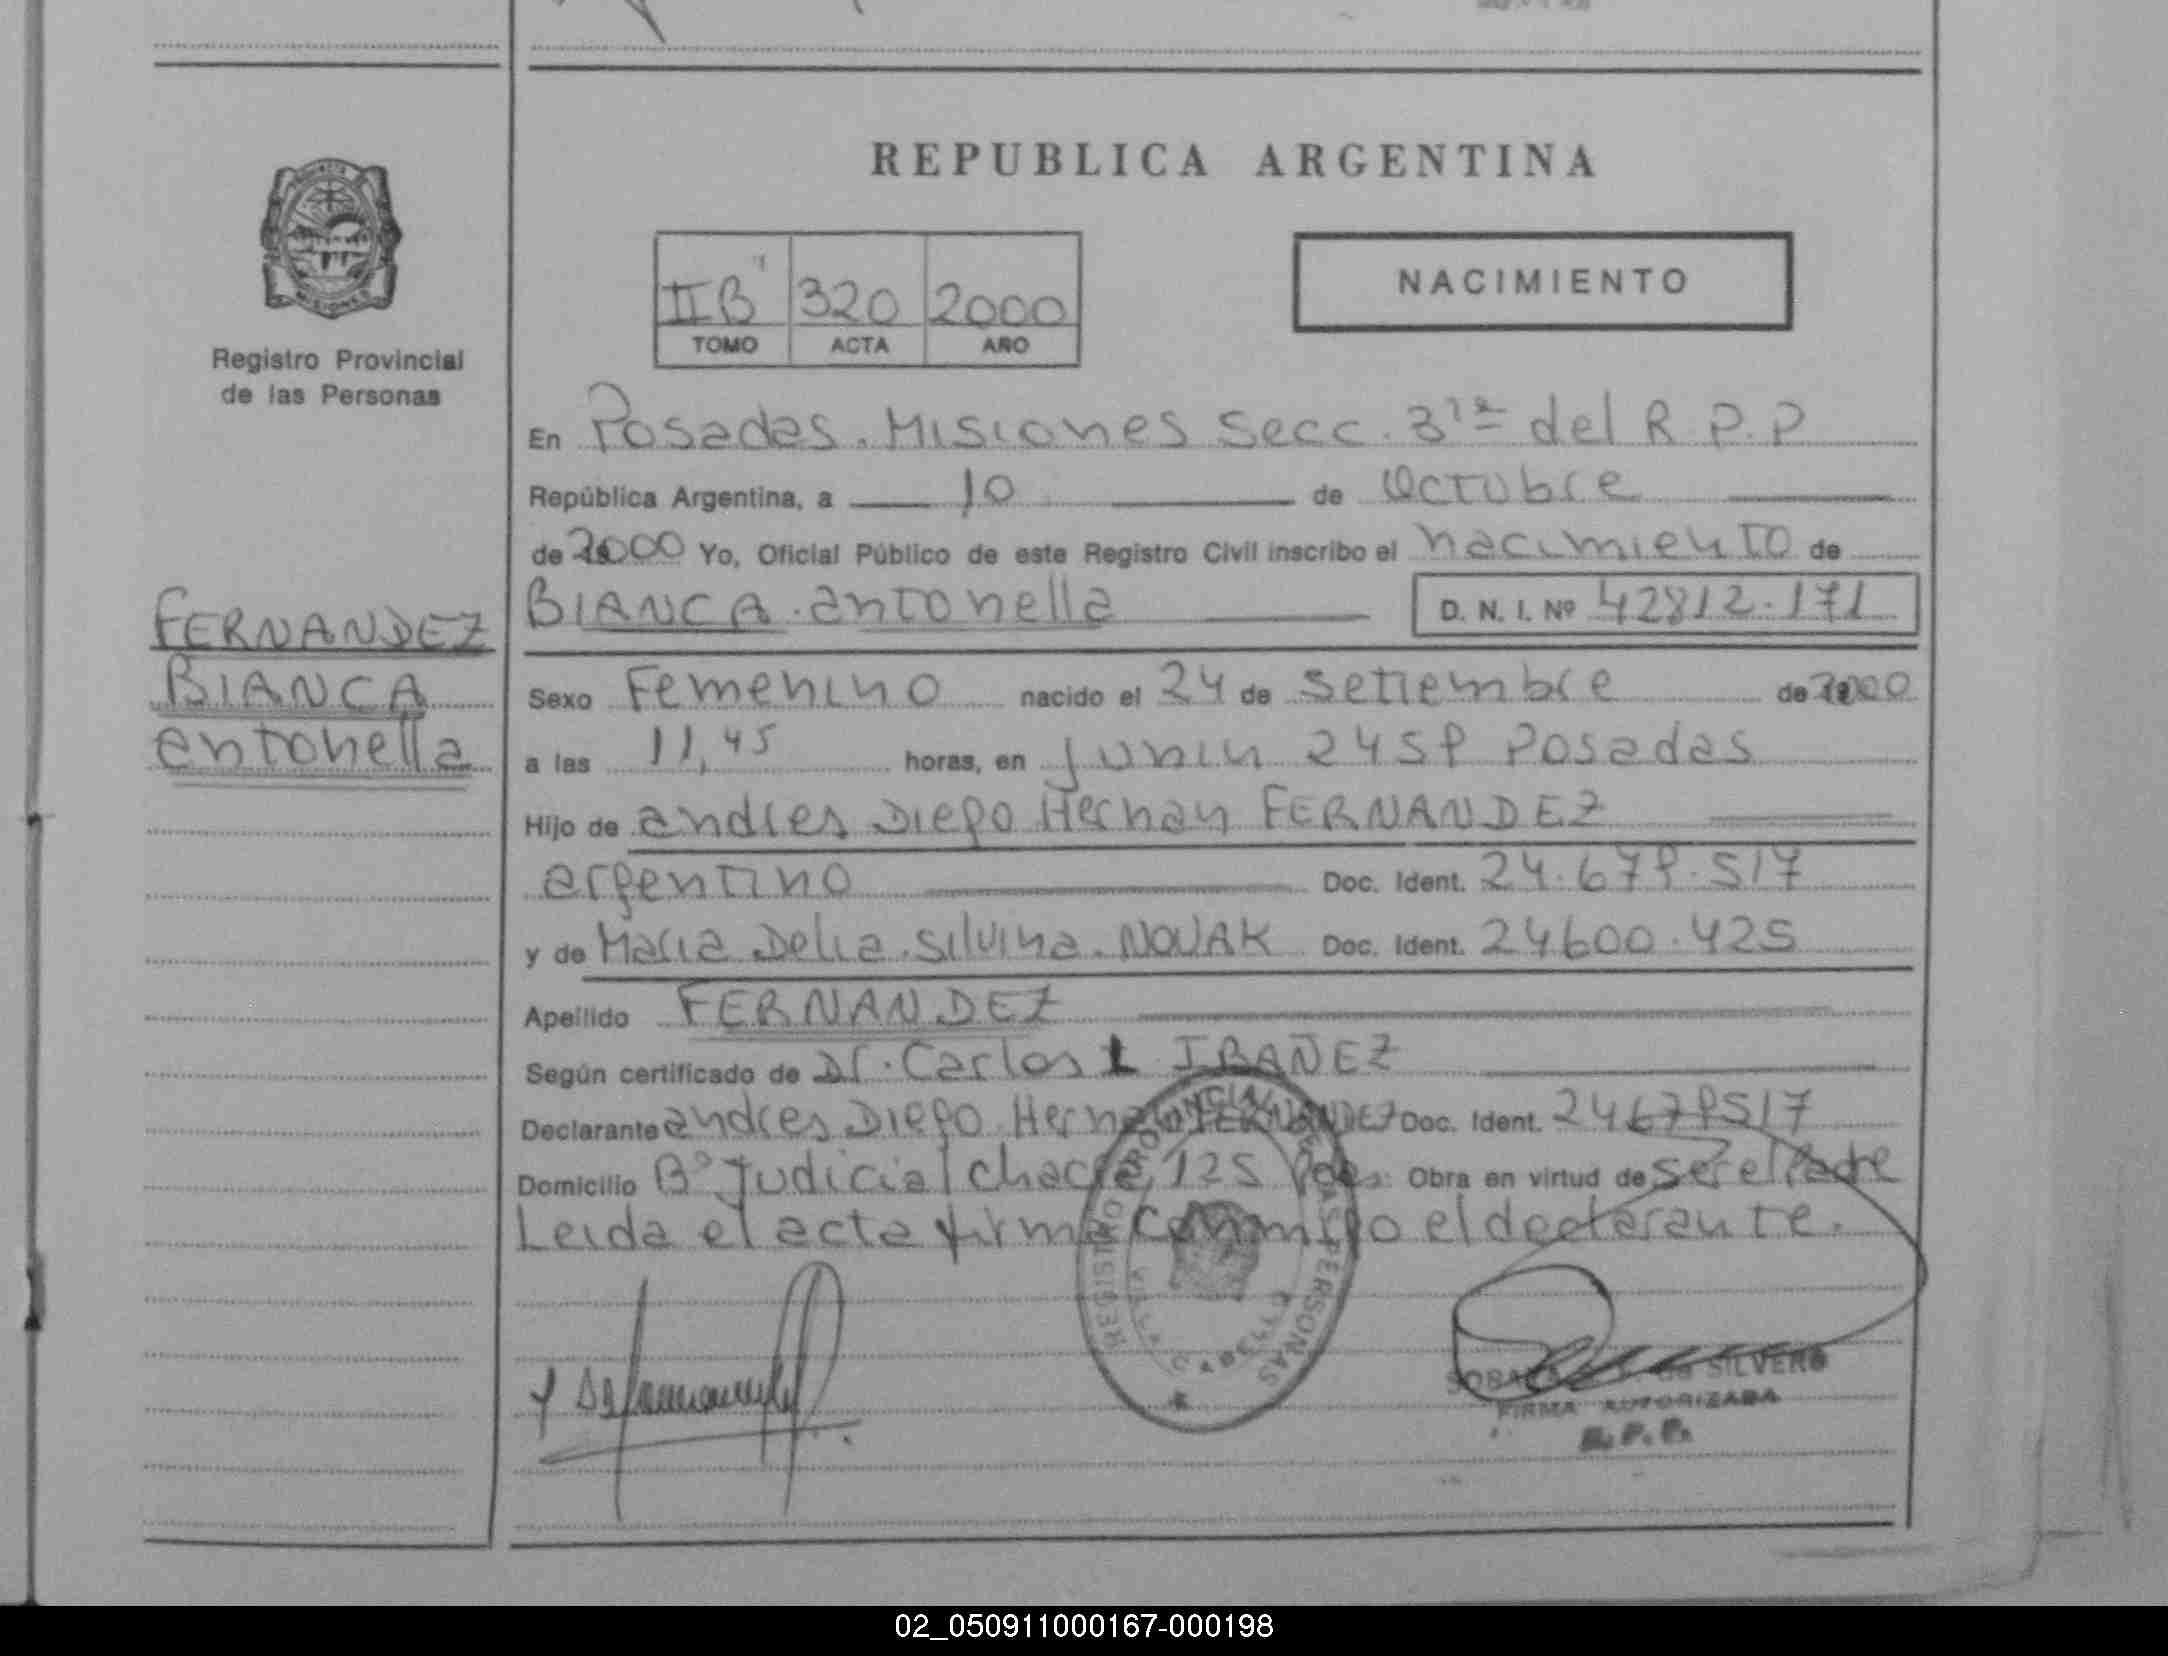 REPUBLICA ARGENTINA
NACIMIENTO
II B 320 2000
TOMO ACTA AÑO
MISIONES
Registro Provincial
de las Personas
En Posadas. Misiones Secc. 3ra del R.P.P
República Argentina, a 10 de Octubre
de 2000 Yo, Oficial Público de este Registro Civil inscribo el nacimiento de
BIANCA. antonella D. N. I. Nº 42812.171
FERNANDEZ
BIANCA
antonella
Sexo Femenino nacido el 24 de Setiembre de 2000
a las 11,45 horas, en Junin 2459 Posadas
Hijo de andres Diego Hernan FERNANDEZ
argentino Doc. Ident. 24.679.517
y de Maria Delia. Silvina. NOVAK Doc. Ident. 24600.425
Apellido FERNANDEZ
Según certificado de Dr. Carlos L IBAÑEZ
Declarante andres Diego Hernan FERNANDEZ Doc. Ident. 24679517
Domicilio Bº Judicial chacra 125 Pdas. Obra en virtud de ser el Padre
Leida el acta firma conmigo el declarante.
REGISTRO PROVINCIAL DE LAS PERSONAS
de SILVERO
FIRMA AUTORIZADA
R. P. P.
02_050911000167-000198